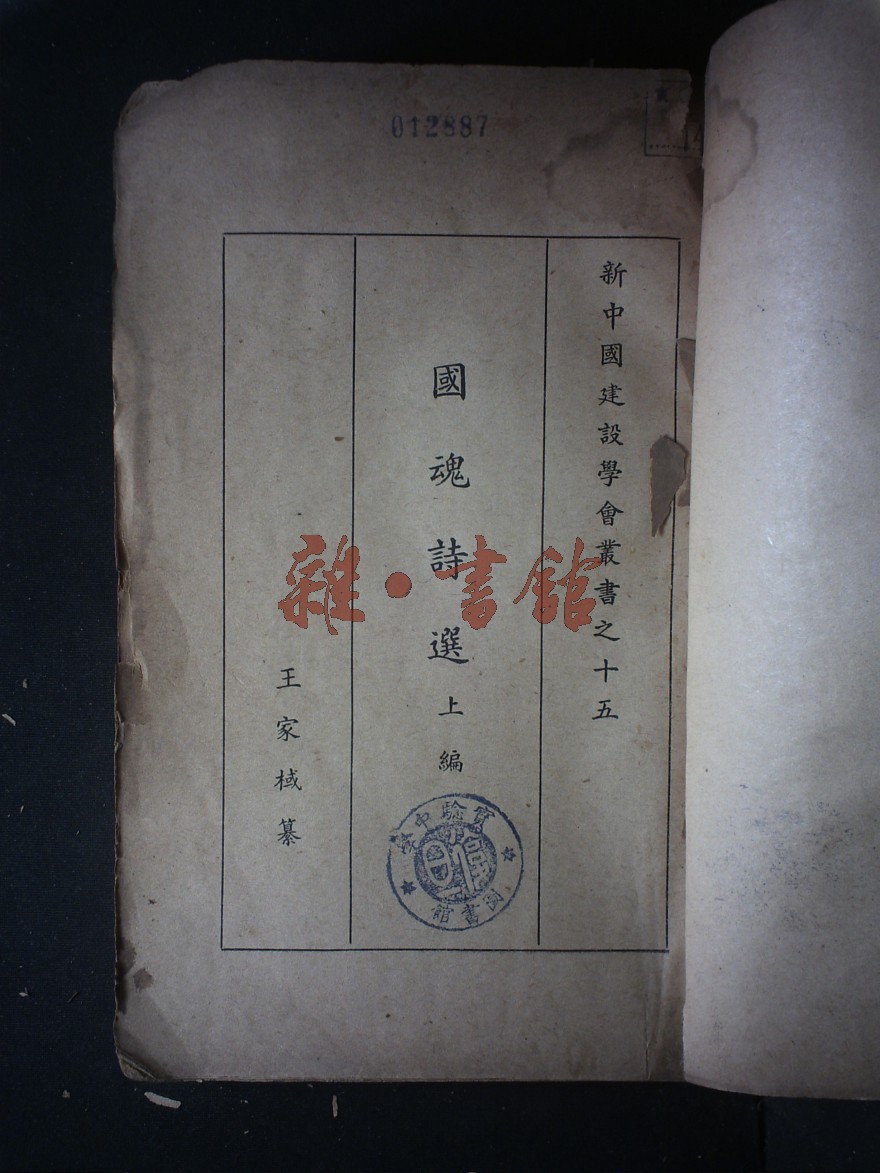 012887
新中國建設學會叢書之十五
國魂詩選上編
王家棫纂
雜·書館
實驗中學
圖書館